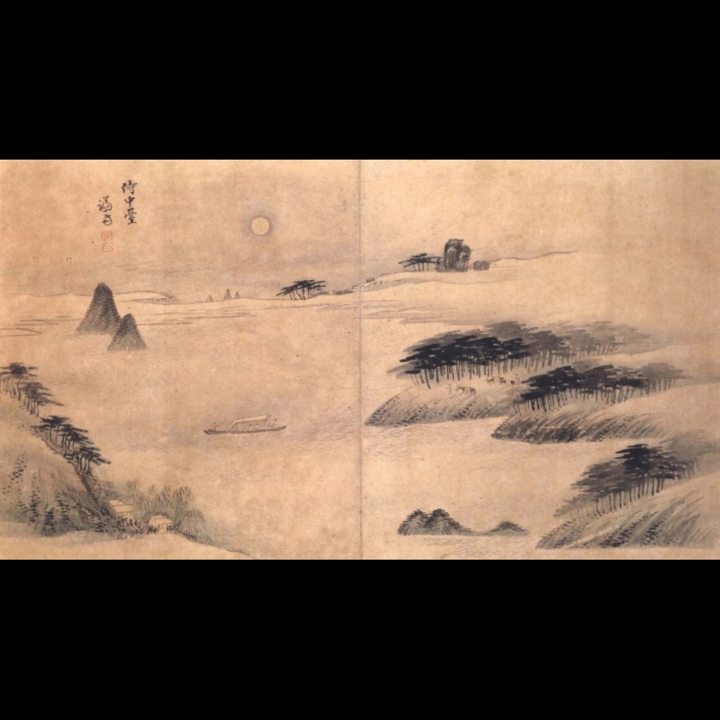 侍中臺
謙齋